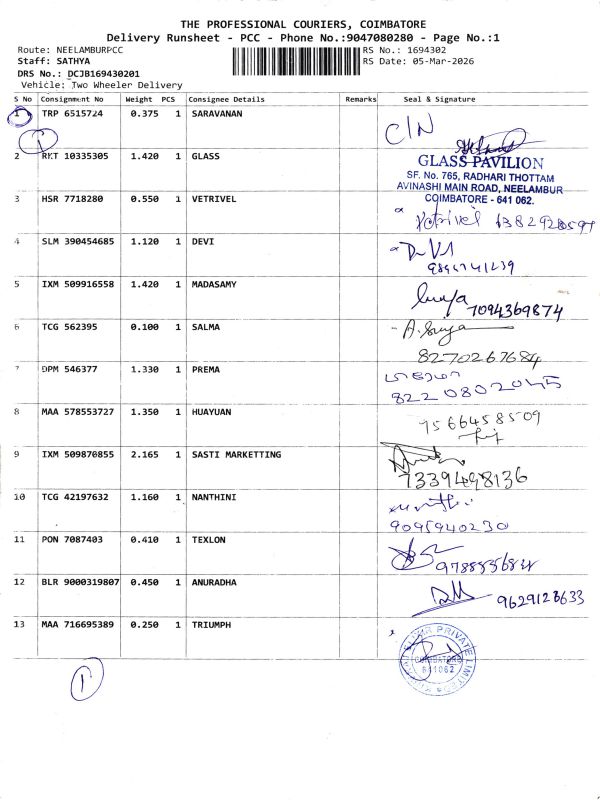 THE PROFESSIONAL COURIERS, COIMBATORE
Delivery Runsheet - PCC - Phone No.:9047080280 - Page No.:1
Route: NEELAMBURPCC
RS No.: 1694302
Staff: SATHYA
RS Date: 05-Mar-2026
DRS No.: DCJB169430201
Vehicle: Two Wheeler Delivery
S No Consignment No Weight PCS Consignee Details Remarks Seal & Signature
1 TRP 6515724 0.375 1 SARAVANAN C/N
1
2 RKT 10335305 1.420 1 GLASS
GLASS PAVILION
SF. No. 765, RADHARI THOTTAM
AVINASHI MAIN ROAD, NEELAMBUR
COIMBATORE - 641 062.
3 HSR 7718280 0.550 1 VETRIVEL
Vetrivel
4 SLM 390454685 1.120 1 DEVI
5 IXM 509916558 1.420 1 MADASAMY
7094369874
6 TCG 562395 0.100 1 SALMA
A. Surya
8270267684
7 DPM 546377 1.330 1 PREMA
8220802045
8 MAA 578553727 1.350 1 HUAYUAN
9566458509
9 IXM 509870855 2.165 1 SASTI MARKETTING
7339498136
10 TCG 42197632 1.160 1 NANTHINI
9095940230
11 PON 7087403 0.410 1 TEXLON
12 BLR 9000319807 0.450 1 ANURADHA
9629128633
13 MAA 716695389 0.250 1 TRIUMPH
PRIVATE LIMITED
COIMBATORE
641062
1